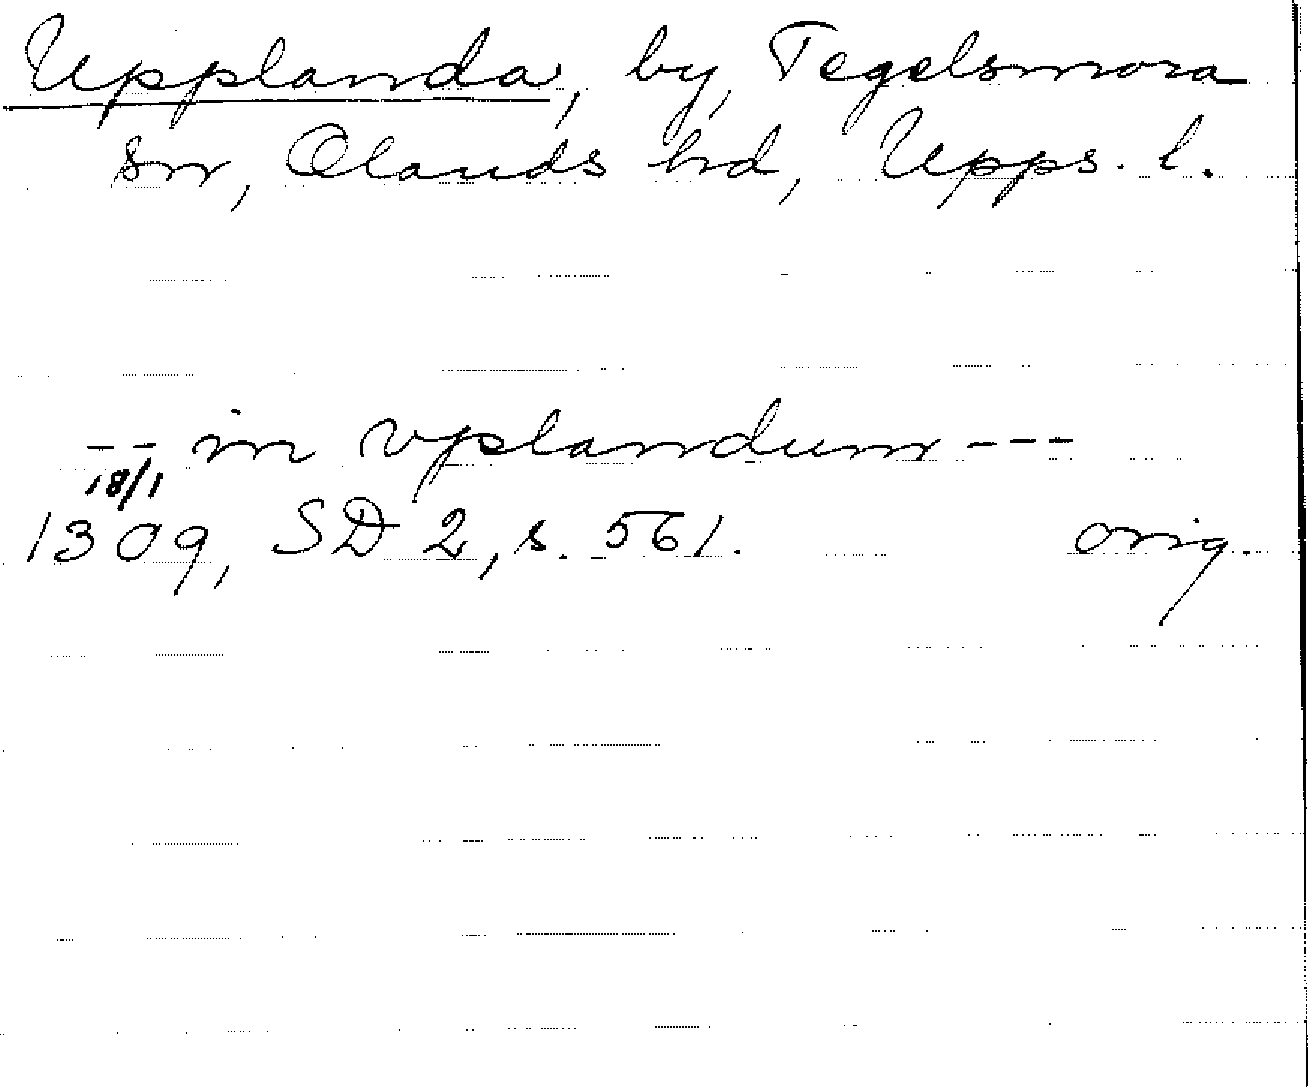 Upplanda, by, Tegelsmora
sn, Olands hd, Upps. l.
-- in vplandum ---
18/1
1309, SD 2, s. 561. orig.